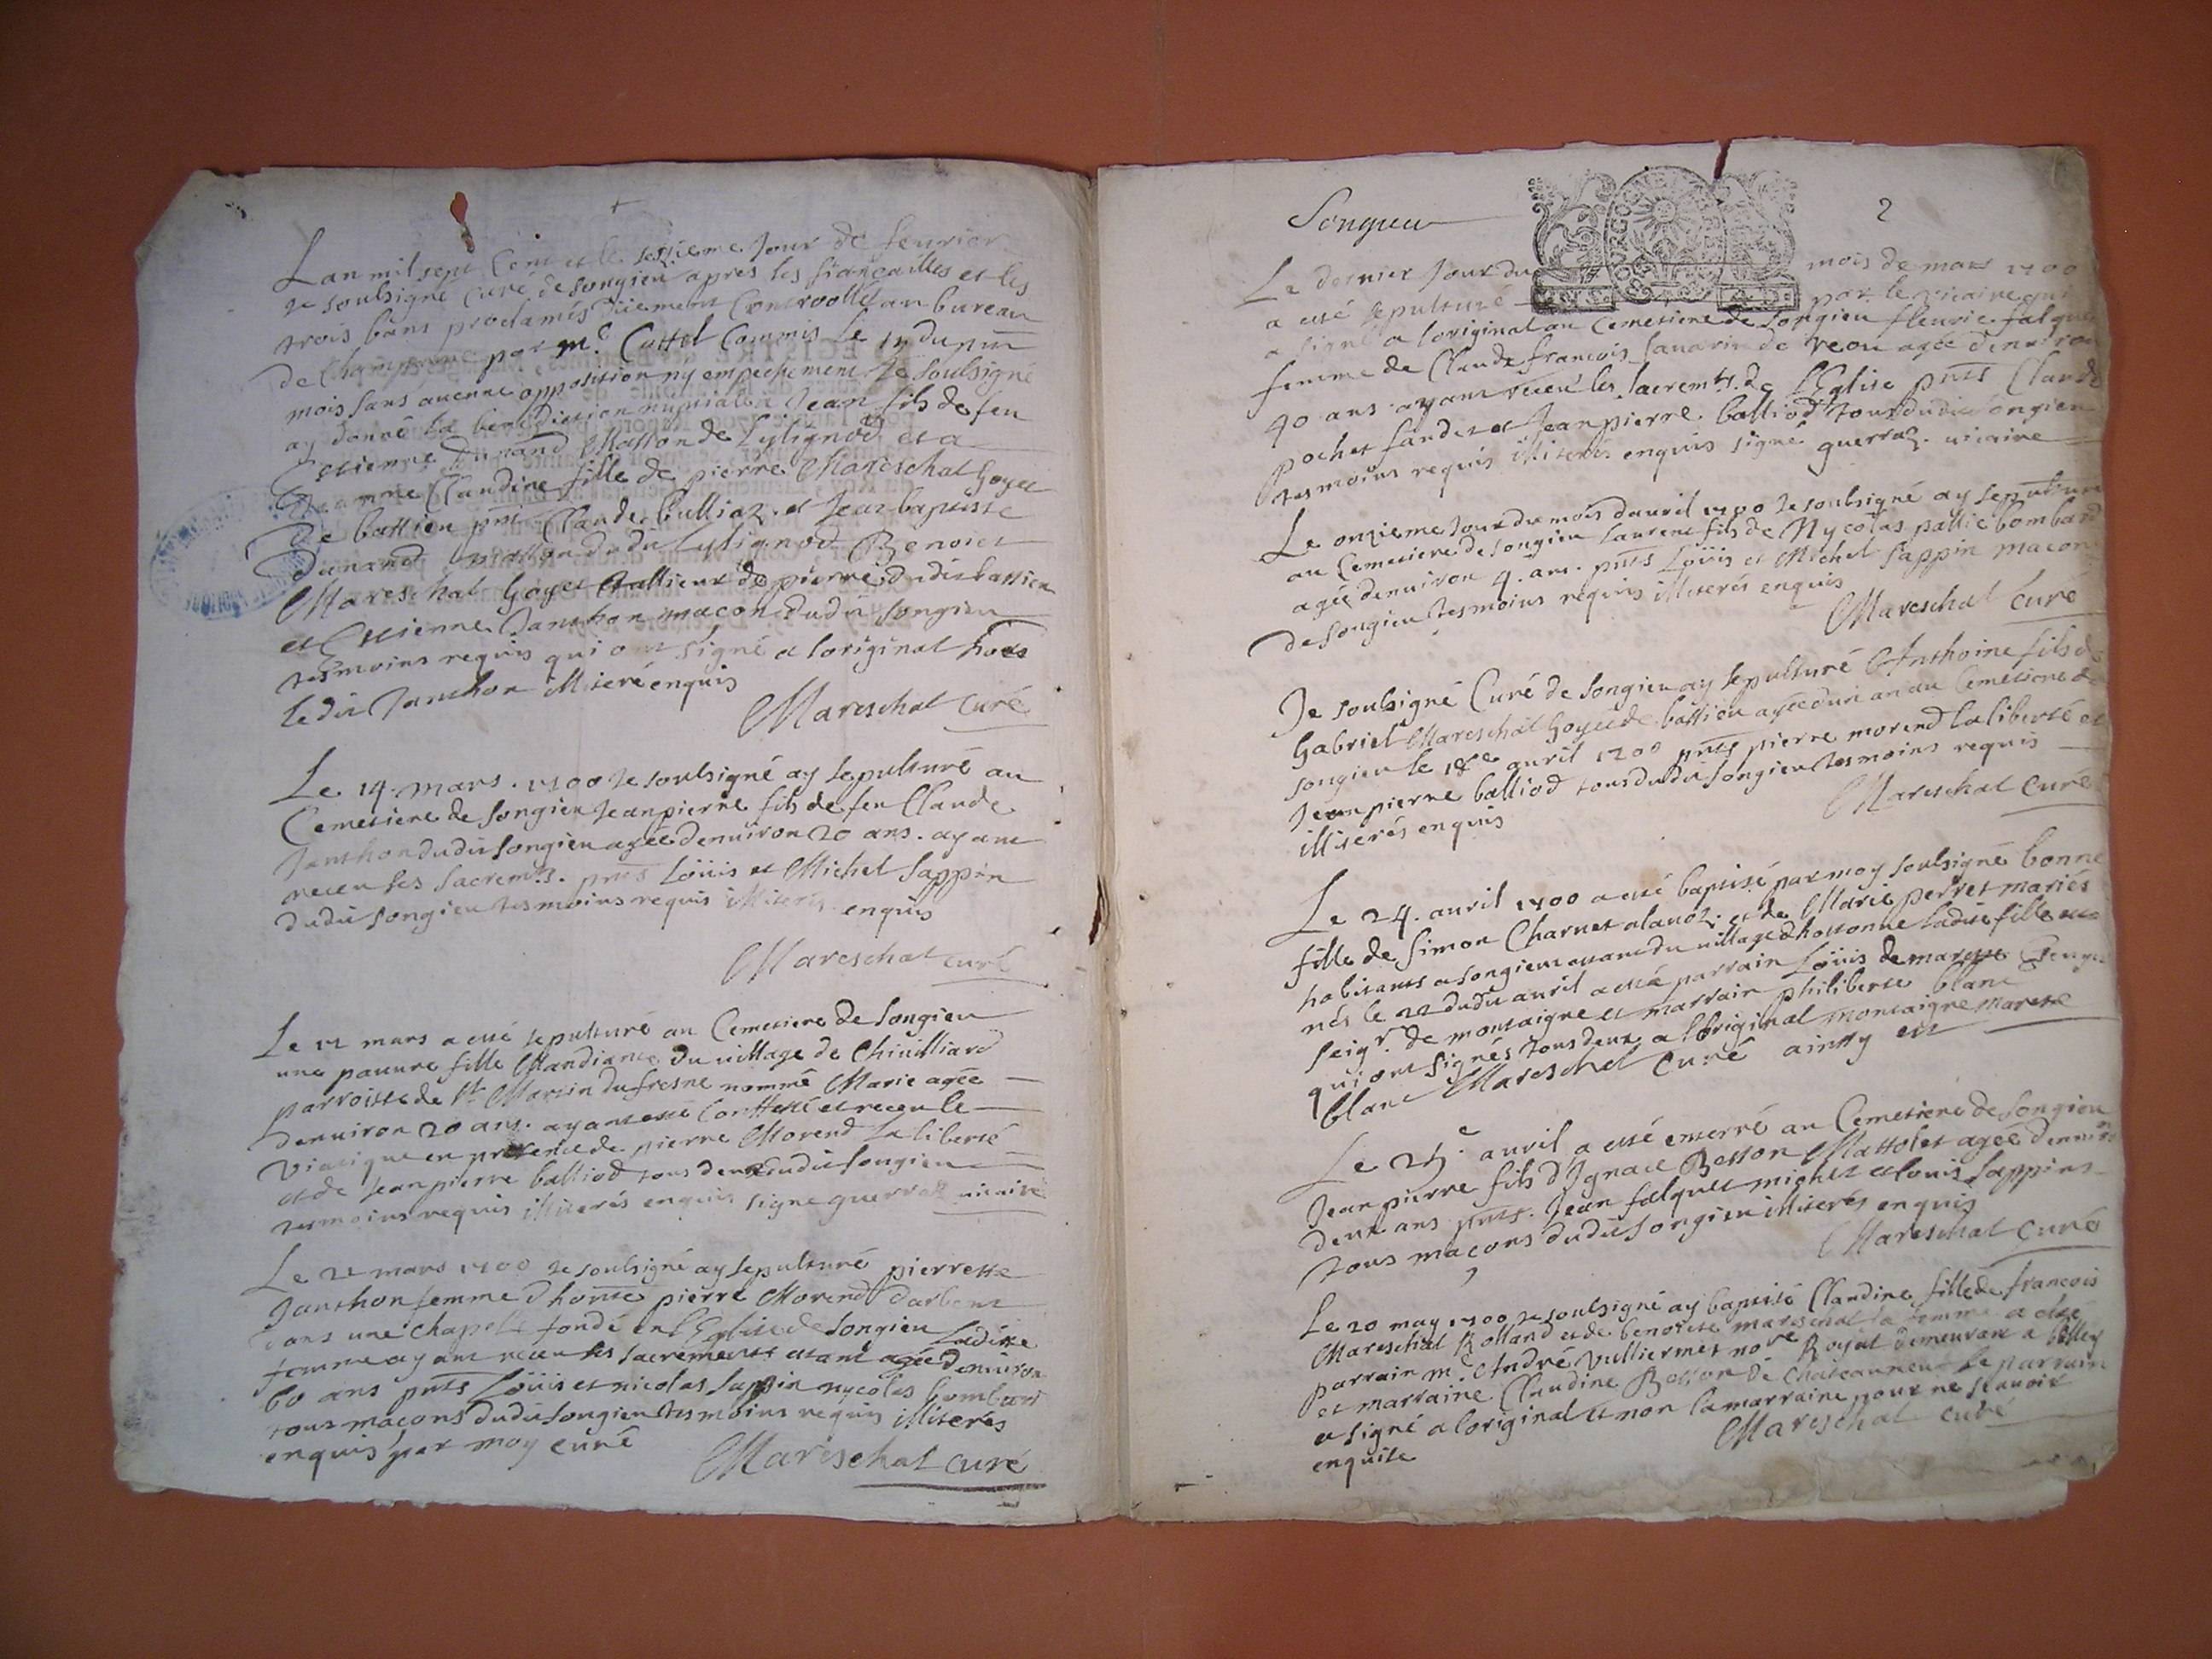 Lan mil sept Cent et le seizieme Jour de feurier
Je soubsigné Curé de Songieu apres les fiançailles et les
trois bans proclamés düement Controollés au bureau
de Champagne par me. Cuttel Commis le 14 du pnt
mois sans aucune opposition ny empechement Je soubsigné
ay donné la benediction nuptiale a Jean fils de feu
Estienne Dunand Masson de Lylignod et a
Jeanne Claudine fille de pierre Mareschal Goyet
de bassieu pnt Claude bulliaz. et Jean baptiste
Dunand masson dudit Lylignod Benoist
Mareschal Goyet de pierre dudit bassieu
et Estienne Janthon macon dudit Songieu
tesmoins requis qui ont signé a loriginal hors
ledit Janthon illiteré enquis
Mareschal Curé
Le 14. mars. 1700 Je soubsigné ay sepulturé au
Cemetiere de Songieu Jeanpierre fils de feu Claude
Janthon dudit Songieu agée denuiron 20 ans. ayant
receu les sacremts. pnts Loüis et Michel Sappin
dudit Songieu tesmoins requis illiterés enquis
Mareschal curé
Le mars a esté sepulturé au Cemetiere de Songieu
une pauure fille Mandiante du uillage de Chiuilliard
parroisse de St Martin du fresne nommé Marie agée
denuiron 20 ans. ayant esté Confessé et receu le
Viatique en presence de pierre Morend La liberté
et de Jeanpierre balliod tous deux dudit Songieu
tesmoins requis illiterés enquis signe guerraz uicaire
Le mars 1700 Je soubsigné ay sepulturé pierrette
Janthon femme dhonte pierre Morend Darbent
dans une chapelle fondé en lEglise de Songieu Laditte
femme ayant receu les sacrements estant agée denuiron
60 ans pnts Loüis et nicolas Sappin nycolas bombard
tous macons dudit Songieu tesmoins requis illiterés
enquis par moy curé
Mareschal curé
Songieu
2
Le dernier Jour du mois de mars 1700
a esté sepulturé par le uicaire qui
a signé a loriginal au Cemetiere de Songieu fleurie falquet
femme de Claude francois Sauarin de agée denuiron
40 ans ayant receu les sacremts. de lEglise pnts Claude
pochet et Jeanpierre balliod tous dudit Songieu
tesmoins requis illiterés enquis signé guerraz. uicaire
Le onzieme Jour du mois dauril 1700 Je soubsigné ay sepulturé
au Cemetiere de Songieu Laurent fils de Nycolas bombard
agée denuiron 4. ans. pnts Loüis et Michel Sappin macons
de Songieu tesmoins requis illiterés enquis
Mareschal Curé
Je soubsigné Curé de Songieu ay sepulturé Anthoine fils de
Gabriel Mareschal Goyet de bassieu agée dun an au Cemetiere de
Songieu le 18e auril 1700 pnts pierre morend la liberté et
Jeanpierre balliod tous dudit Songieu tesmoins requis
illiterés enquis
Mareschal Curé
Le 24. auril 1700 a esté baptisé par moy soubsigné bonne
fille de Simon Charuet et de Marie perret mariés
habitants a Songieu du uillage dhostonne ladite fille
nés le 22 dudit auril a esté parrain Loüis de mareste
seigr. de montaigne et marrain philiberte blanc
qui ont signés tous deux a loriginal montaigne mareste
blanc Mareschal curé ainsy est
Le auril a esté enterré au Cemetiere de Songieu
Jeanpierre fils dIgnace Besson Mattolet agée denuiron
deux ans pnts. Jean falquet michet et Louis Sappins
tous macons dudit Songieu illiterés enquis
Mareschal Curé
Le 20 may 1700 Je soubsigné ay baptisé Claudine fille de francois
Mareschal Rolland et de benoiste mareschal sa femme a esté
parrain me. André Vulliermet nore. Royal demeurant a belley
et marraine Claudine Besson de Chateauneuf le parrain
a signé a loriginal et non la marraine pour ne scauoir
enquise
Mareschal curé